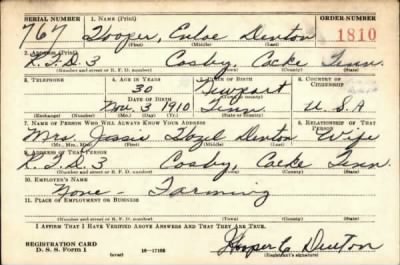 SERIAL NUMBER 1. NAME (Print) ORDER NUMBER
767 Hooper, Enloe Denton 1810
(First) (Middle) (Last)
2. ADDRESS (Print)
R.F.D. 3 Cosby, Cocke Tenn.
(Number and street or R. F. D. number) (Town) (County) (State)
3. TELEPHONE 4. AGE IN YEARS 5. PLACE OF BIRTH 6. COUNTRY OF CITIZENSHIP
30 Newport
DATE OF BIRTH (Town or county)
Nov. 3 1910 Tenn U.S.A
(Exchange) (Number) (Mo.) (Day) (Yr.) (State or country)
7. NAME OF PERSON WHO WILL ALWAYS KNOW YOUR ADDRESS 8. RELATIONSHIP OF THAT PERSON
Mrs. Jessie Hazel Denton Wife
(Mr., Mrs., Miss) (First) (Middle) (Last)
9. ADDRESS OF THAT PERSON
R.F.D. 3 Cosby, Cocke Tenn.
(Number and street or R. F. D. number) (Town) (County) (State)
10. EMPLOYER'S NAME
None - Farming
11. PLACE OF EMPLOYMENT OR BUSINESS
(Number and street or R. F. D. number) (Town) (County) (State)
I AFFIRM THAT I HAVE VERIFIED ABOVE ANSWERS AND THAT THEY ARE TRUE.
REGISTRATION CARD
D. S. S. Form 1 (over) 16—17105 Hooper E Denton
(Registrant's signature)